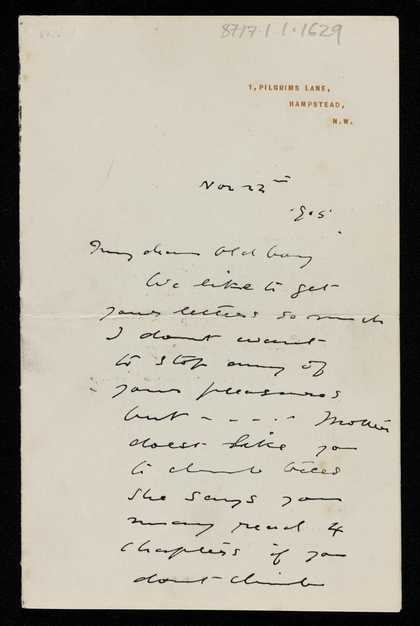 8717.1.1.1629
1, PILGRIMS LANE,
HAMPSTEAD,
N.W.
Nov 22nd
'95
My dear Old boy
We like to get
your letters so much
I dont want
to stop any of
your pleasures
but - - - - - Mother
doesnt like you
to climb trees
She says you
may read 4
chapters if you
dont climb